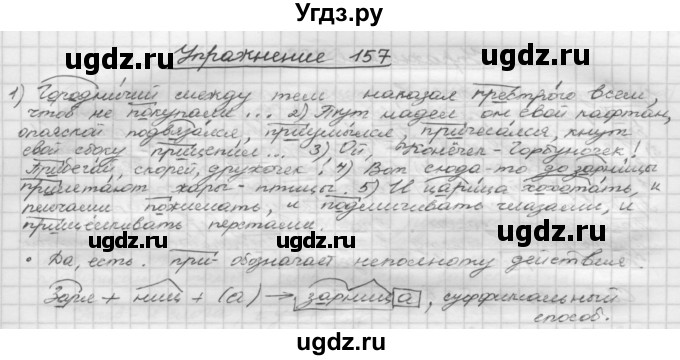 Угдз.ру
Упражнение 157
1) Городничий между тем наказал престрого всем,
чтоб не покупали... 2) Тут надел он свой кафтан,
опояской подвязался, приумылся, причесался, кнут
свой сбоку прицепил... 3) Ой, Конёчек-Горбуночек!
Прибегай, скорей, дружочек! 4) Вот сюда-то до зарницы
прилетают жары-птицы. 5) И царица хохотать, и
плечами пожимать, и подмигивать глазами, и
прищёлкивать перстами.
• Да, есть. при- обозначает неполноту действия.
Заря + ниц + (а) → зарница, суффиксальный
способ.
ugdz.ru ugdz.ru
ugdz.ru ugdz.ru
ugdz.ru ugdz.ru
ugdz.ru ugdz.ru
ugdz.ru ugdz.ru
ugdz.ru